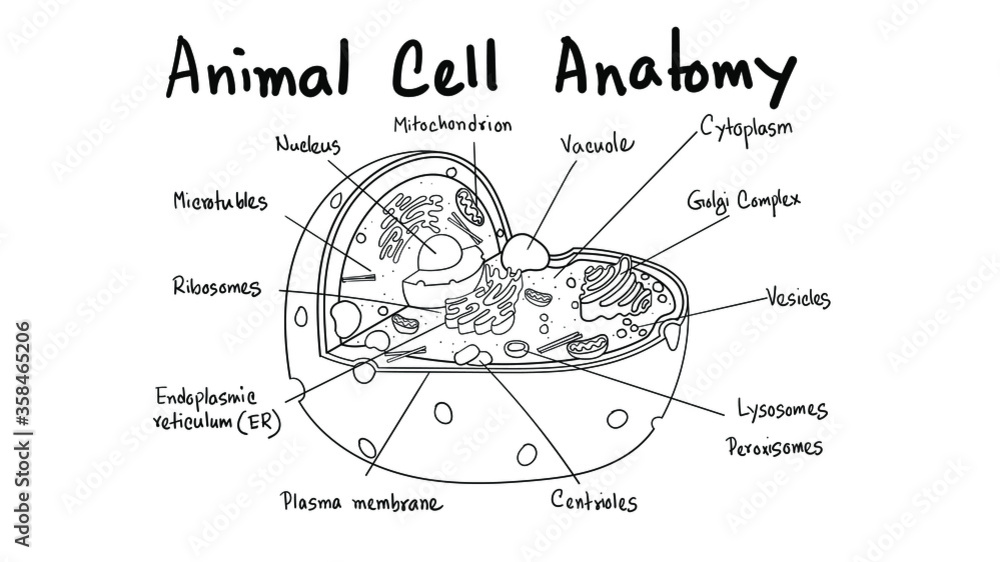 Animal Cell Anatomy
Mitochondrion
Cytoplasm
Nucleus
Vacuole
Microtubles
Golgi Complex
Ribosomes
Vesicles
Endoplasmic
reticulum (ER)
Lysosomes
Peroxisomes
Plasma membrane
Centrioles
Adobe Stock | #358465206
Adobe Stock